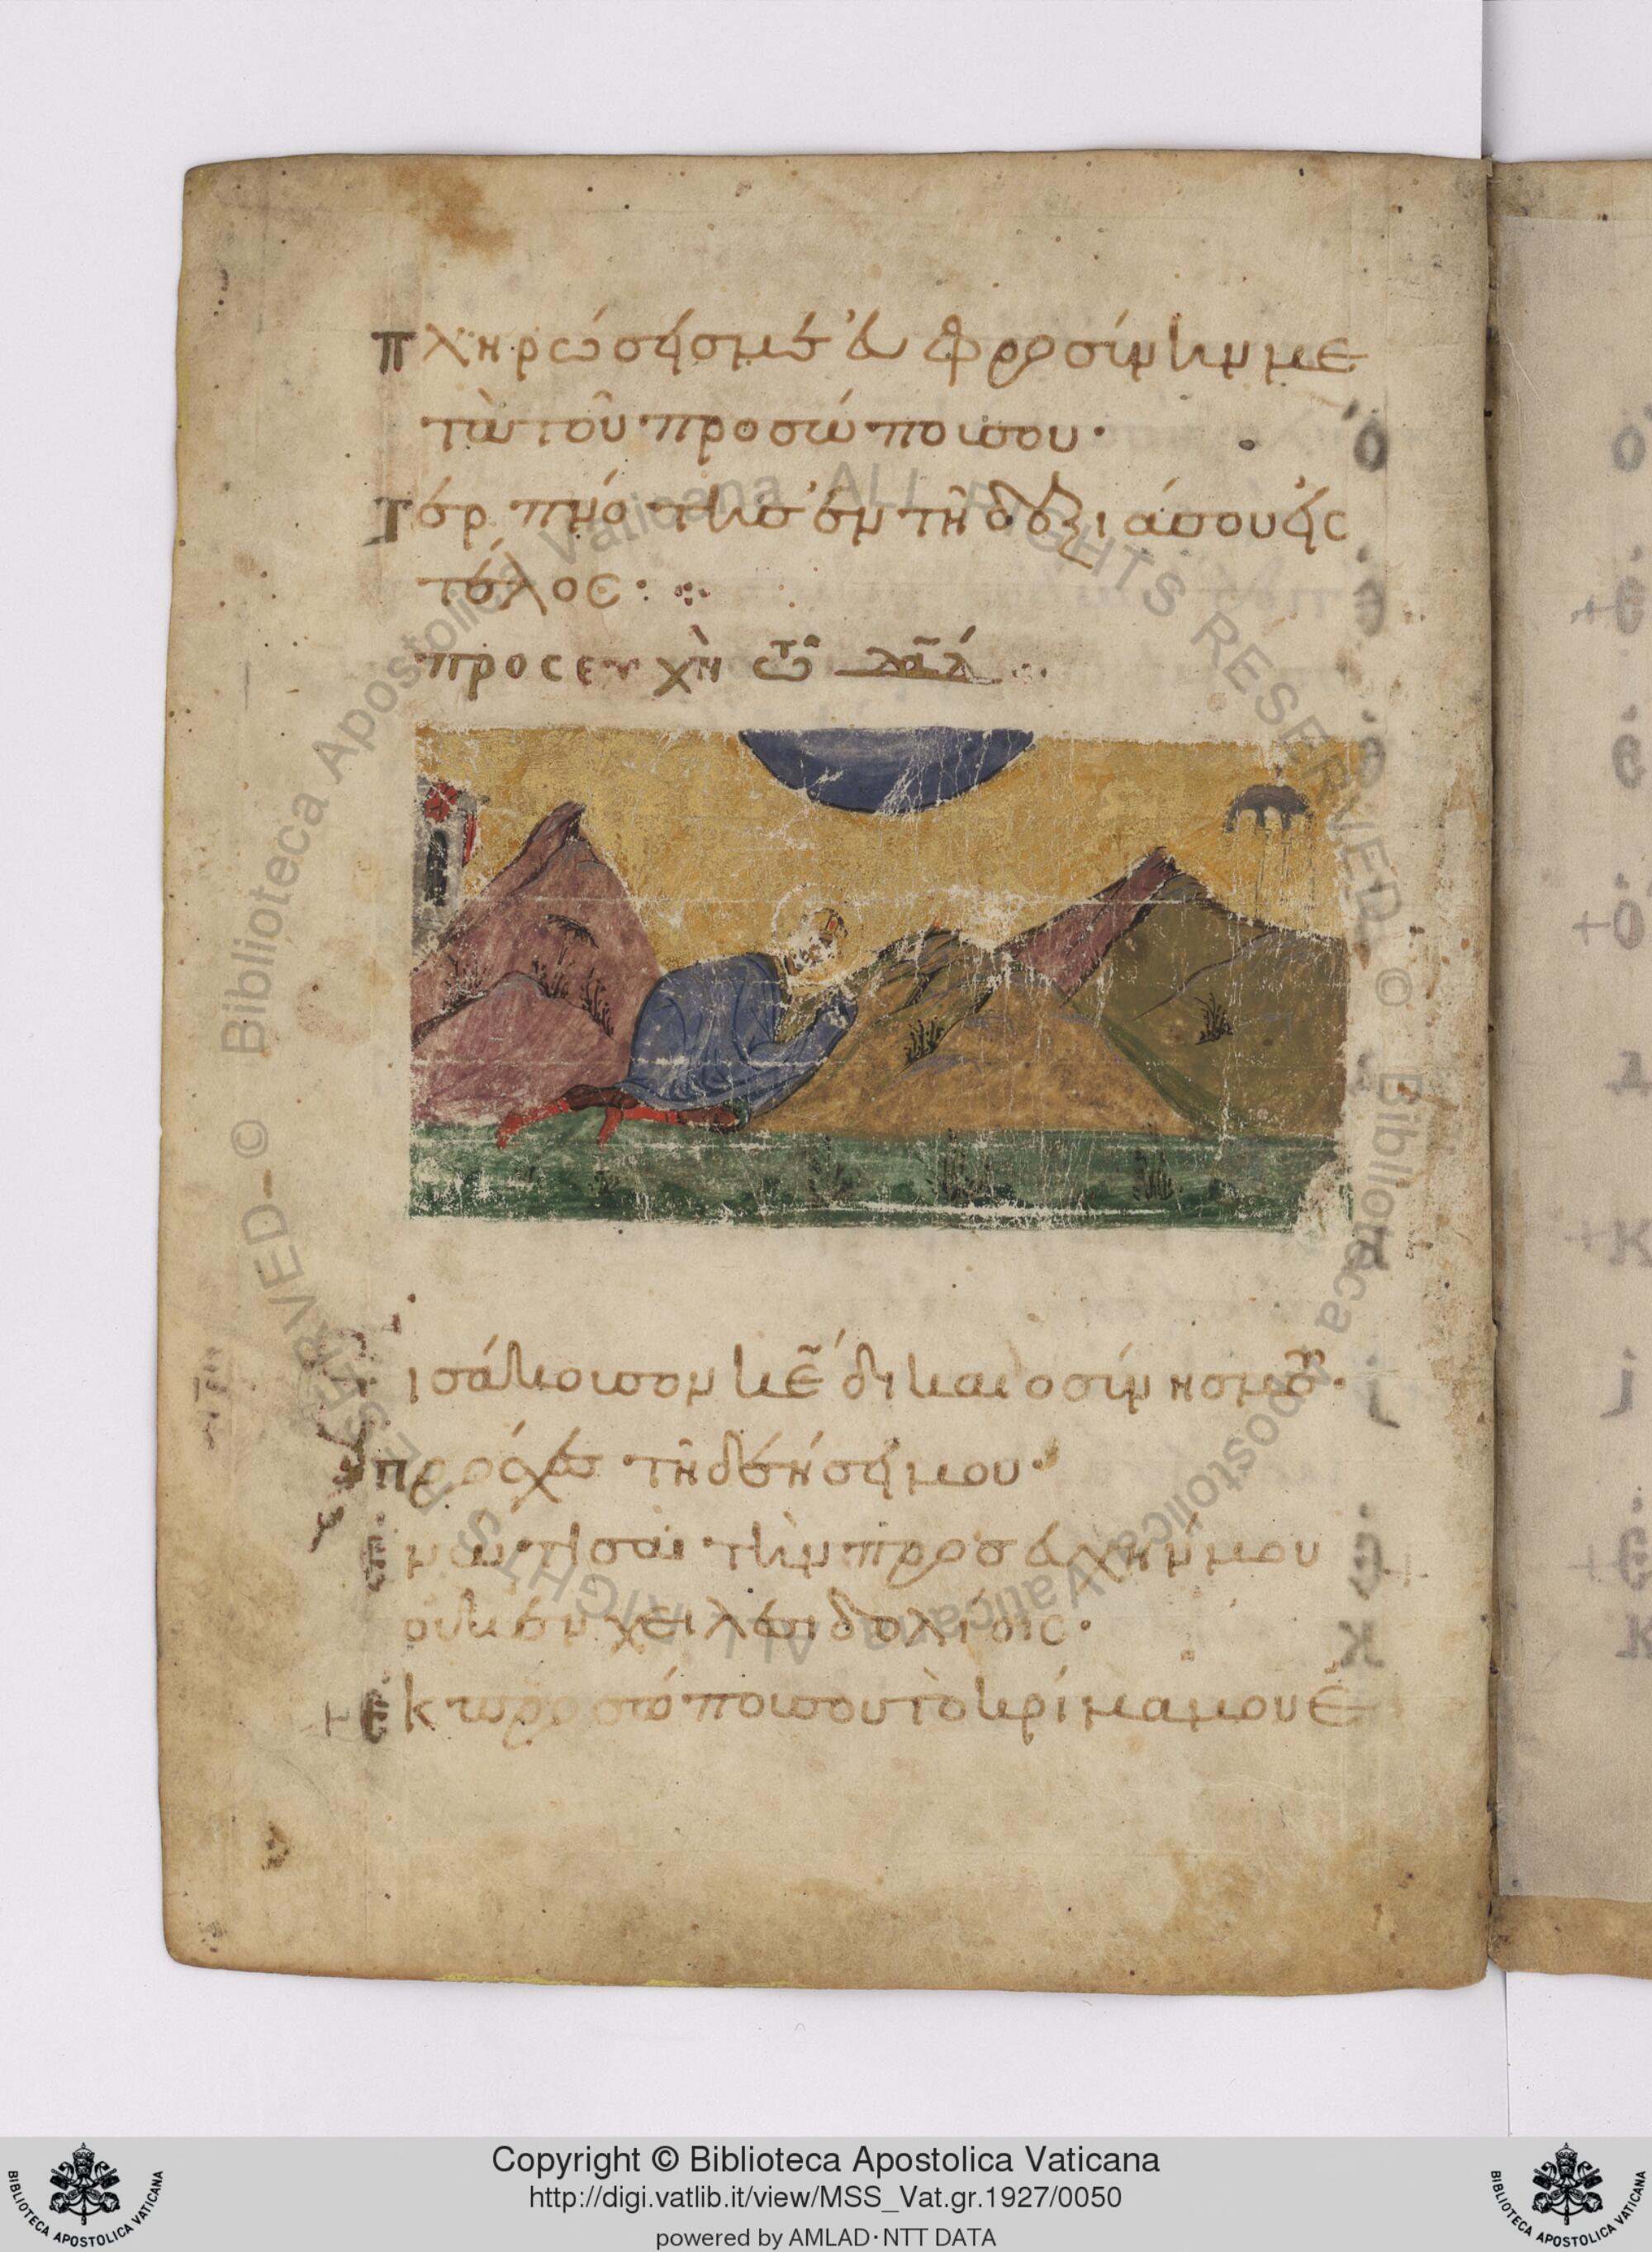 πληρώσεις με εὐφροσύνην με
τὰ τοῦ προσώπου σου·
τερπνότης ἐν τῇ δεξιᾷ σου εἰς
τέλος·
προσευχὴ τῶ δαδ
εἰσάκουσον κε δικαιοσύνης μου·
πρόσχες τῇ δεήσει μου·
ἐνώτισαι τὴν προσευχήν μου
οὐκ ἐν χείλεσι δολίοις·
ἐκ προσώπου σου τὸ κρίμα μου ἐ
Copyright © Biblioteca Apostolica Vaticana
http://digi.vatlib.it/view/MSS_Vat.gr.1927/0050
powered by AMLAD·NTT DATA
BIBLIOTECA APOSTOLICA VATICANA
BIBLIOTECA APOSTOLICA VATICANA
© Biblioteca Apostolica Vaticana ALL RIGHTS RESERVED
© Biblioteca Apostolica Vaticana ALL RIGHTS RESERVED